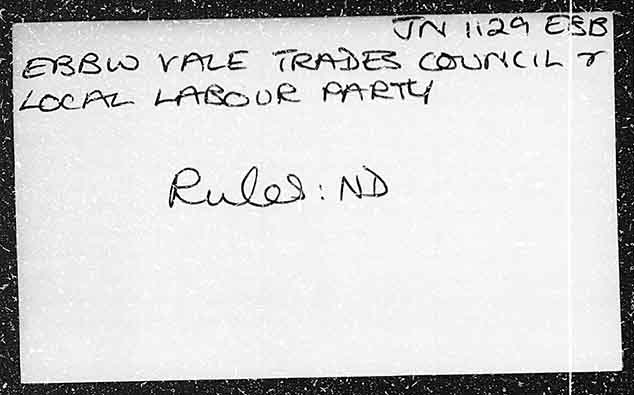 JN 1129 EBB
EBBW VALE TRADES COUNCIL &
LOCAL LABOUR PARTY
Rules: ND